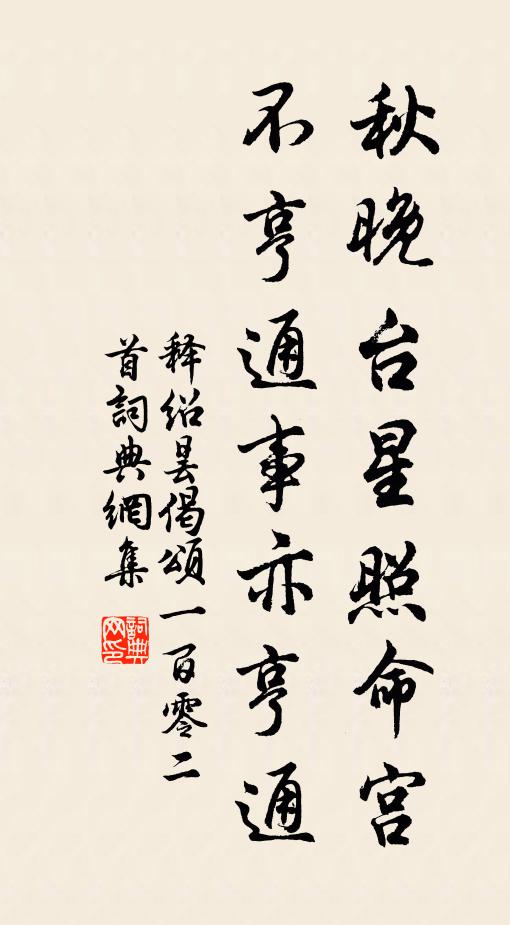 秋晚台星照命宫
不亨通事亦亨通
释绍昙偈颂一百零二
首詞典網集
詞典
网印